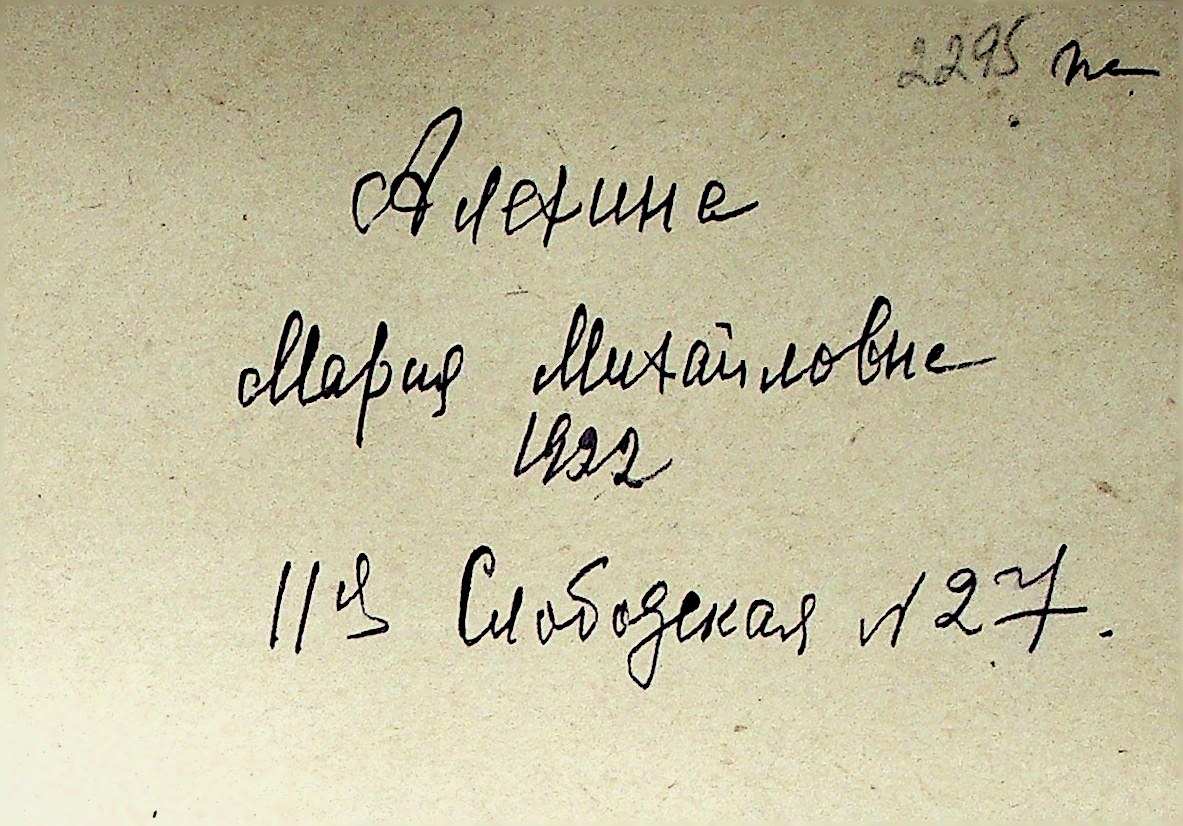 2295 на
Алехина
Мария Михайловна
1922
11я Слободская N 27.